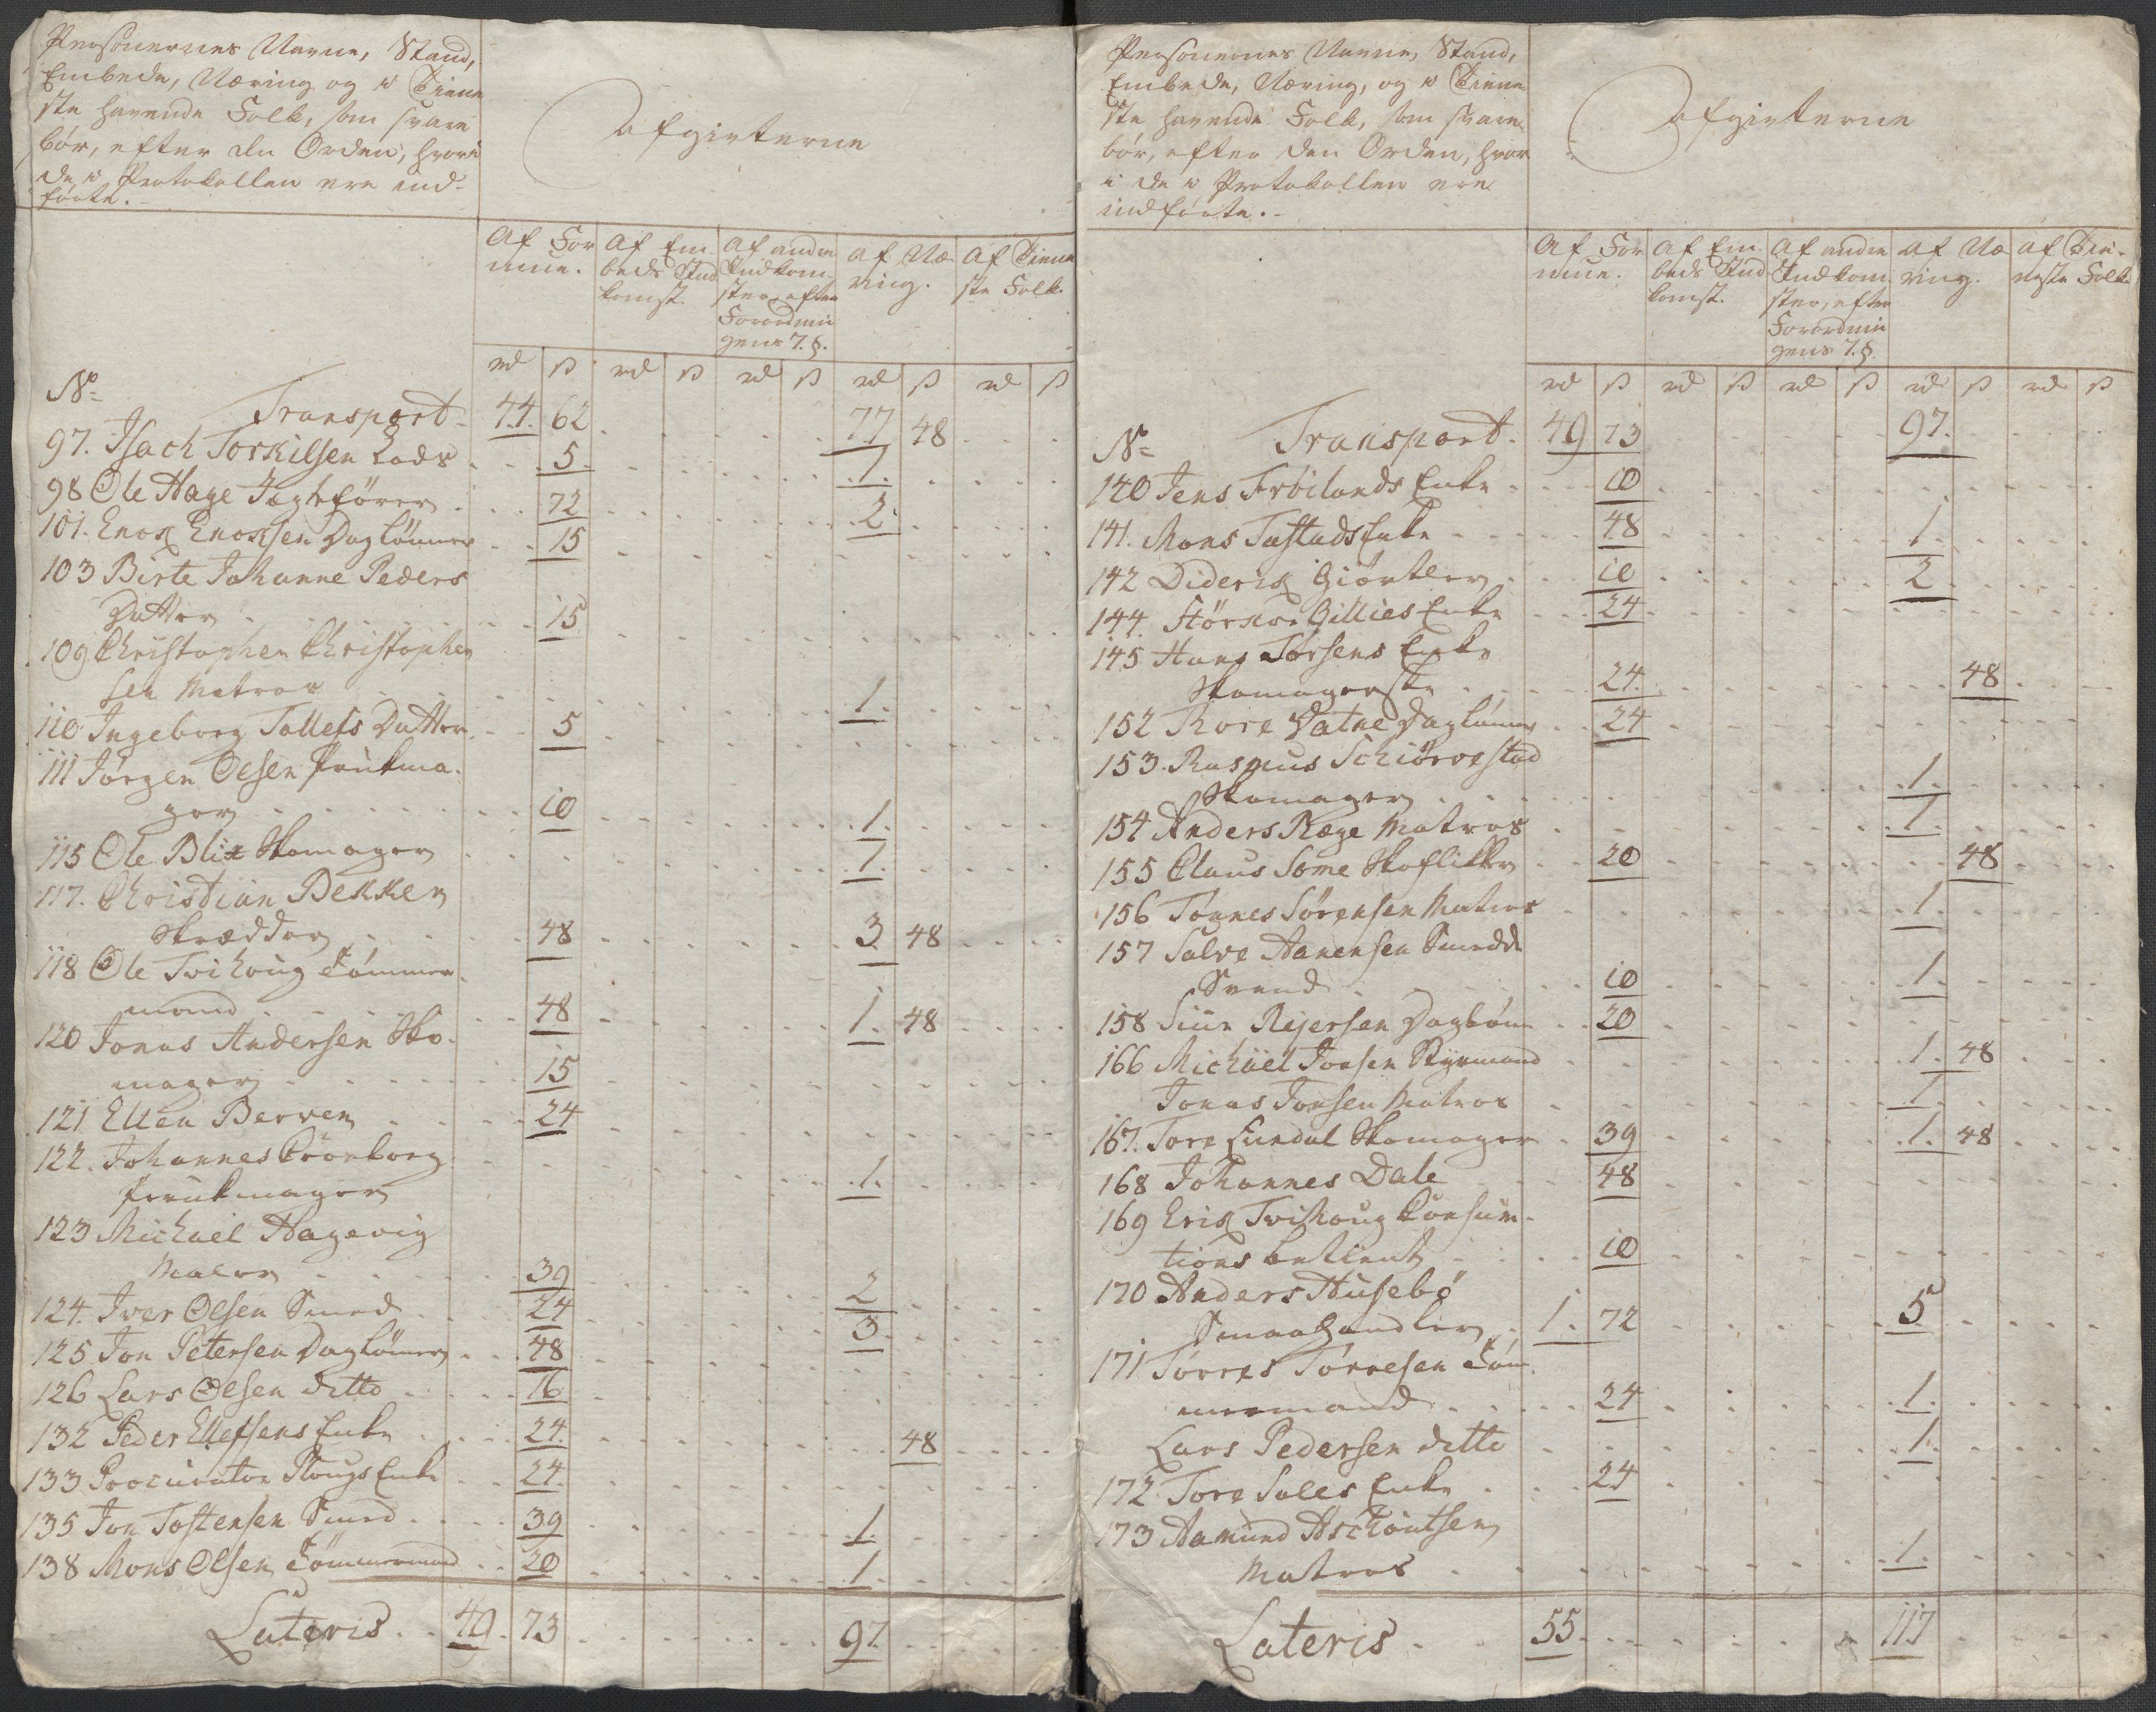 Personernes Navne, Stand,
Embede, Næring og i Tiene
ste havende Folk, som svare
bør, efter den Orden, hvori
de i Protokollen ere ind-
førte.
Afgivterne
Af For
mue.
Af Em
beds Ind
komst.
Af andre
Indkom
ster, efter
Forordnin
gens 7. §.
Af Næ
ring.
Af Tiene
ste Folk.
rd ß rd ß rd ß rd ß rd ß
No
Transport 44. 62 77 48
97. Isach Torkilsen Lods 5 1.
98 Ole Hage Jægtfører 72 2.
101. Enox Enoxsen Daglønner 15
103 Birte Johanne Peders
Datter 15
109 Christopher Christopher
sen Matros 1.
110 Ingeborg Tollefs Datter 5
111 Jørgen Olsen Parükma-
ger 10 1.
115 Ole Blix Skomager 1.
117. Christian Bekker
Skrædder 48 3 48
118 Ole Tvihoug Tømmer
mand 48 1. 48
120 Jonas Andersen Sko-
mager 15
121 Ellen Berven 24
122. Johannes Cronborg
Parükmager 1.
123 Michael Hagevig
Maler 39 2
124. Iver Olsen Smed 24 3
125 Jon Petersen Dagløner 48
126 Lars Olsen ditto 16
132 Peder Ellefsens Enke 24. 48
133 Procurator Plougs Enke 24.
135 Jon Tostensen Smed 39 1.
138 Mons Olsen Tømmermand 20 1.
Lateris 49. 73 97
Personernes Navne, Stand,
Embede, Næring, og i Tiene
ste havende Folk, som svare
bør, efter den Orden, hvor
i de i Protokollen ere
indførte.
Afgivterne
Af For
mue.
Af Em
beds Ind
komst.
Af andre
Indkom
ster, efter
Forordnin
gens 7. §.
Af Næ
ring.
Af Tie-
neste Folk
rd ß rd ß rd ß rd ß rd ß
No Transport 49 73 97.
140 Jens Frøilands Enke 10
141. Mons Tastads Enke 48 1.
142 Diderix Giørtler 10 2
144. Størker Gillies Enke 24
145 Hans Torsens Enke
Skomagerske 24. 48
152 Thore Vatne Dagløner 24
153. Rasmus Schiørvestad
Skomager 1.
154 Anders Ræge Matros 1.
155 Claus Some Skoflikker 20 48
156 Tønnes Sørensen Matros 1.
157 Salve Aanensen Smedde
Svend 10 1.
158 Siur Rejersen Dagløn 20
166 Michael Jonsen Styrmand 1. 48
Jonas Jonsen Matros 1.
167. Tore Lundal Skomager 39 1. 48
168 Johannes Dale 48
169 Erix Tvihoug Consum-
tions betient 10
170 Anders Husebø
Smaahandler 1. 72 5
171 Torres Torresen Tøm
mermand 24 1.
Lars Pedersen ditto 1.
172 Tore Soles Enke 24
173 Aamund Aschoutsen
Matros 1.
Lateris 55. 117